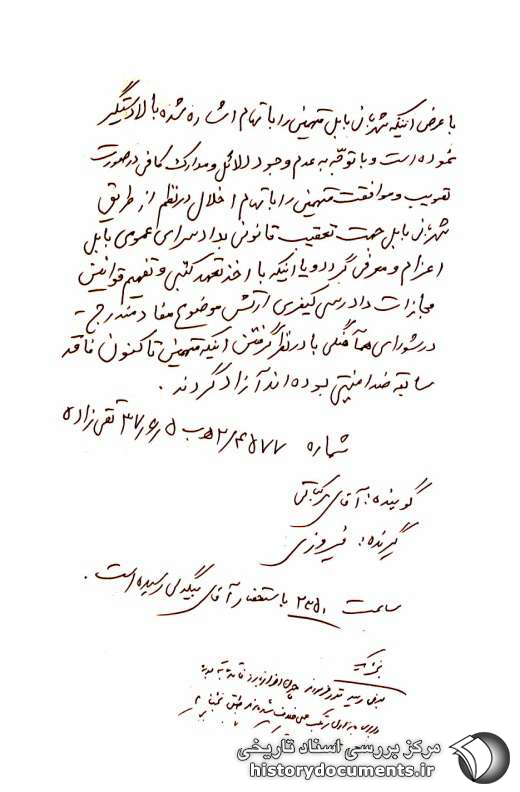 با عرض اینکه شهربانی بابل متهمین را باتهام اشاره شده بالا دستگیر
نموده است و با توجه به عدم وجود دلائل و مدارک کافی در صورت
تصویب و موافقت متهمین را باتهام اخلال در نظم از طریق
شهربانی بابل جهت تعقیب قانونی بدادسرای عمومی بابل
اعزام و معرفی گردد و یا اینکه با اخذ تعهد کتبی و تفهیم قوانین
مجازات دادرسی کیفری ارتش موضوع مفاد مندرج -
در شورای هماهنگی با در نظر گرفتن اینکه متهمین تاکنون فاقد
سابقه ضد امنیتی بوده اند آزاد گردند .
شماره ۵۲/۴۵۷۷ ه‍ب ۳۷/۶/۵ تقی زاده
گوینده : آقای
گیرنده : فیروزی
ساعت ۲۳۵۰ باستحضار آقای بیگدلی رسیده است .
مرکز بررسی اسناد تاریخی
historydocuments.ir